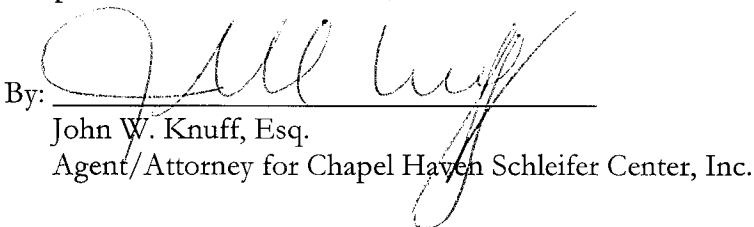 By:
John W. Knuff, Esq.
Agent/Attorney for Chapel Haven Schleifer Center, Inc.